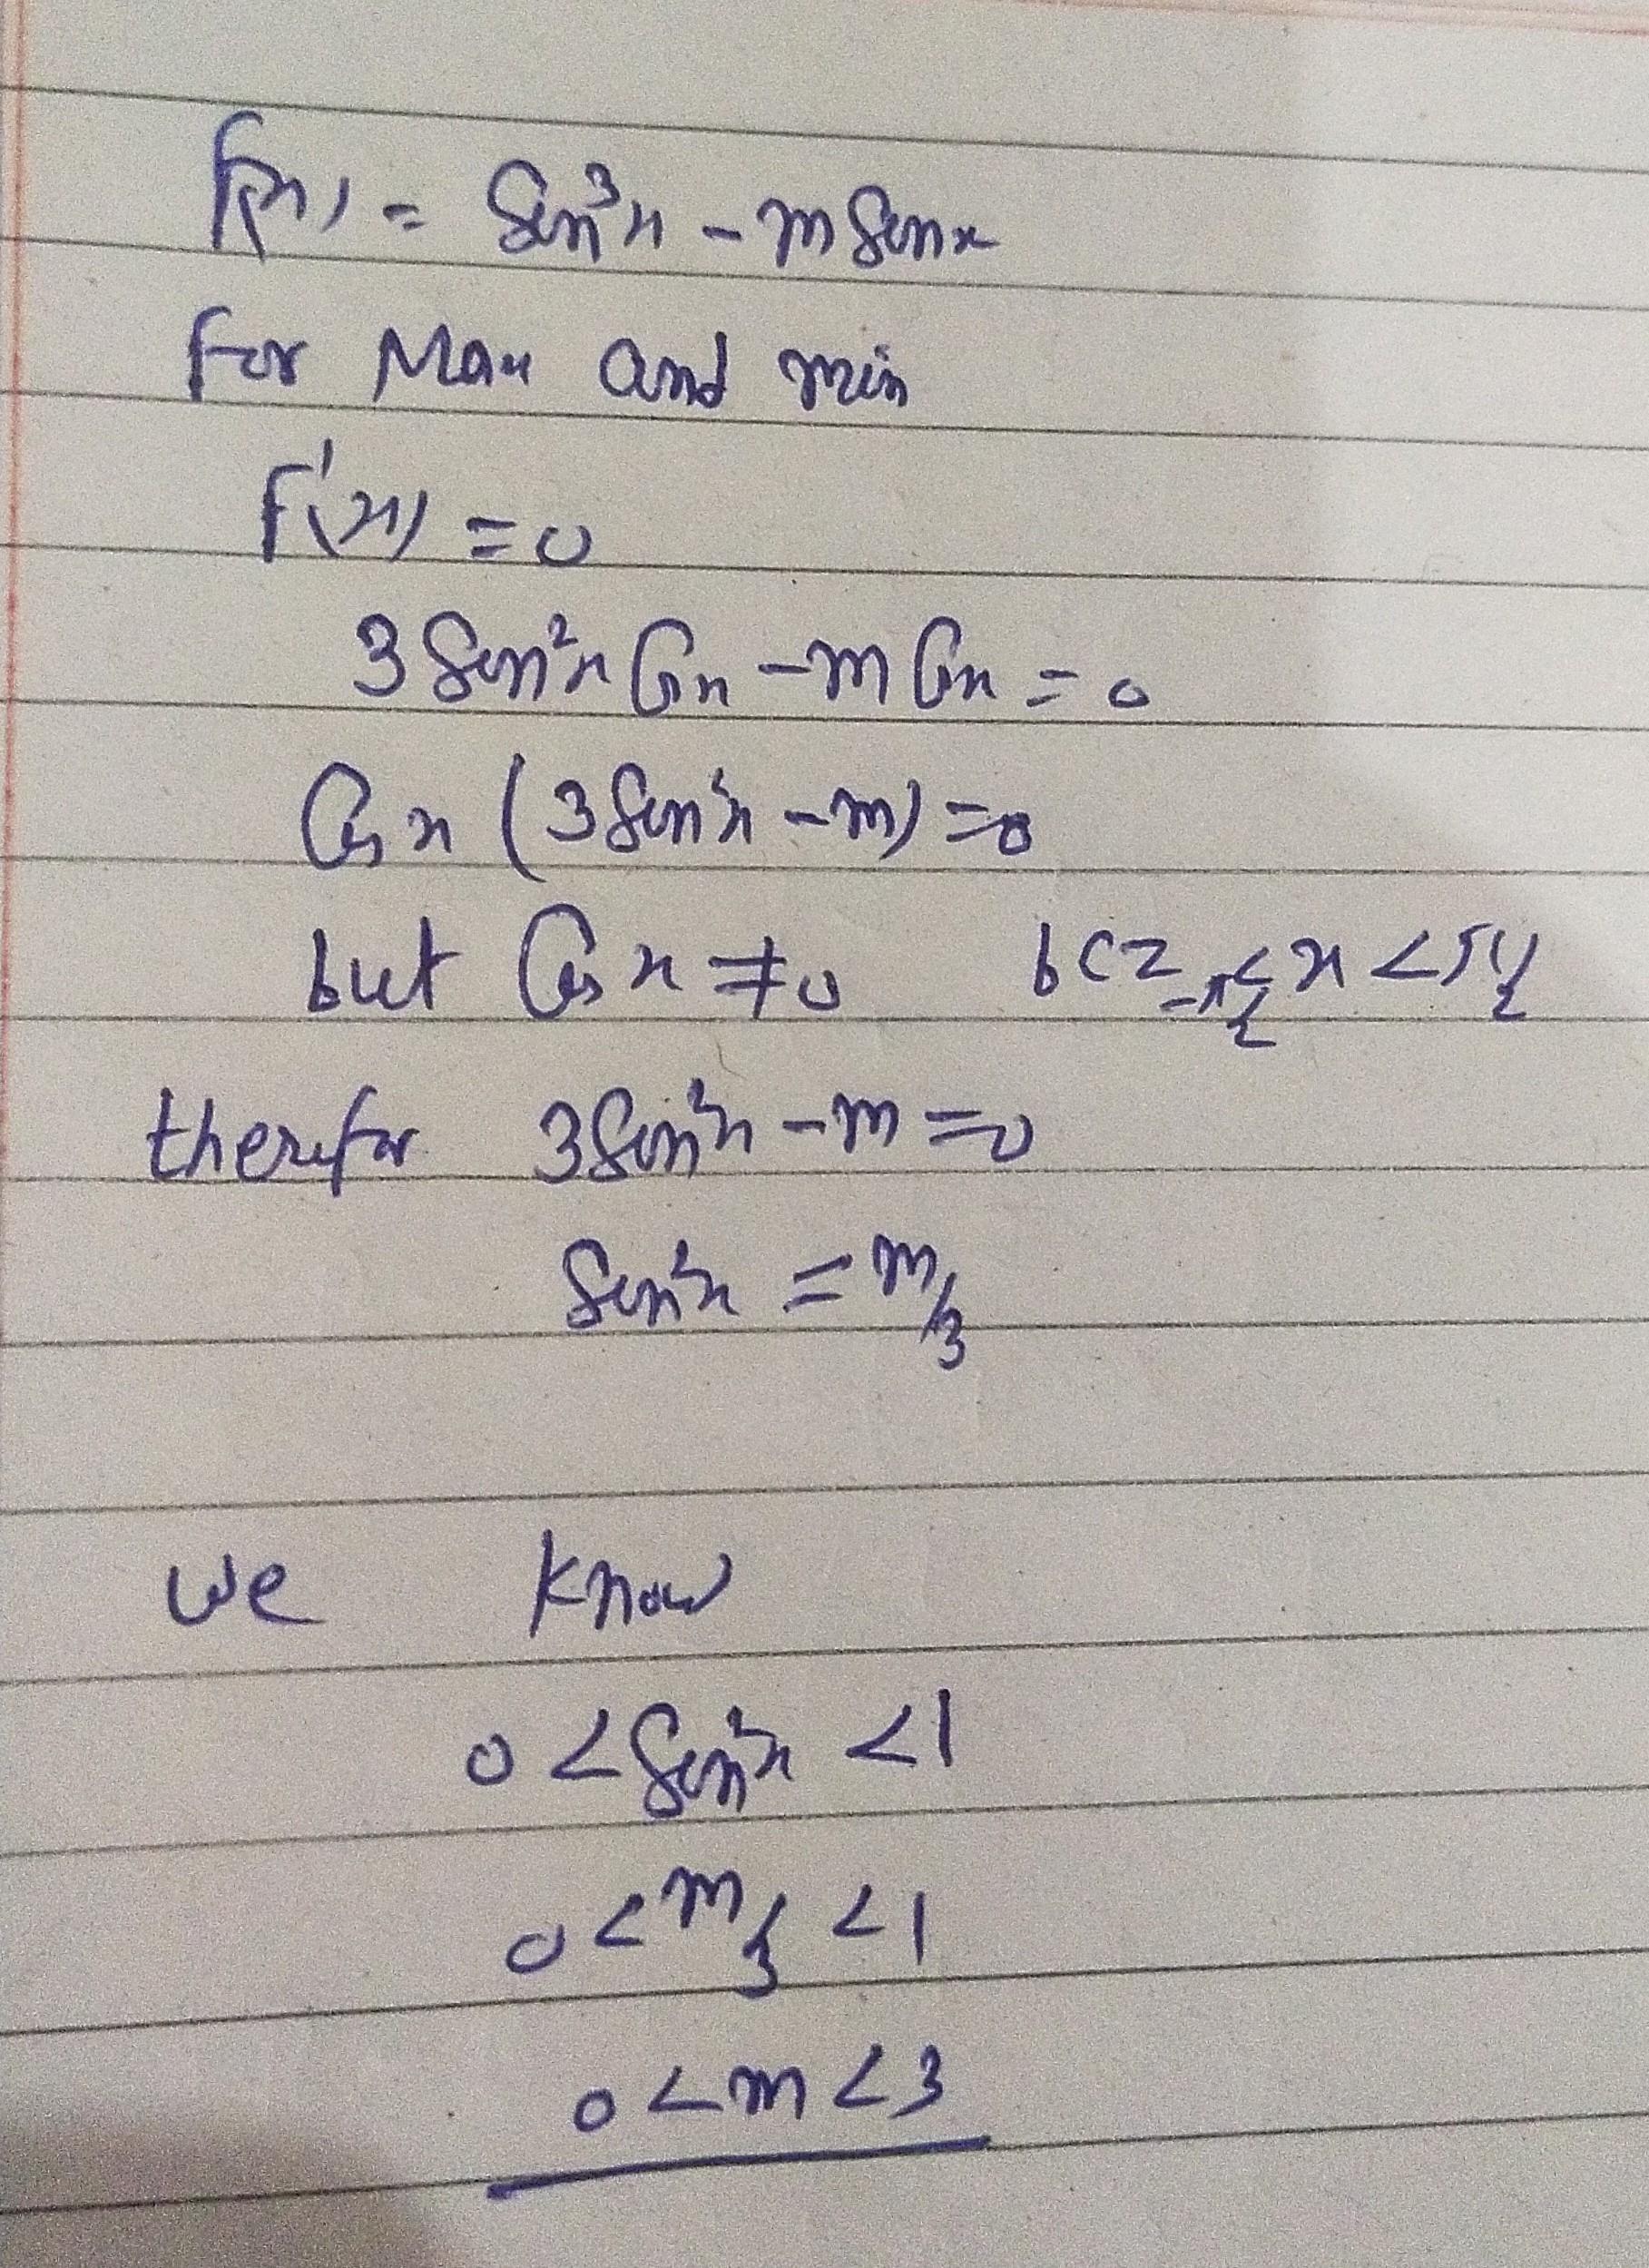 f(x) = Sin³x - m Sinx
for Max and min
f'(x) = 0
3 Sin²x Cosx - m Cosx = 0
Cosx (3 Sin²x - m) = 0
but Cosx ≠ 0 bcz -π/2 < x < π/2
therefor 3 Sin²x - m = 0
Sin²x = m/3
we know
0 < Sin²x < 1
0 < m/3 < 1
0 < m < 3